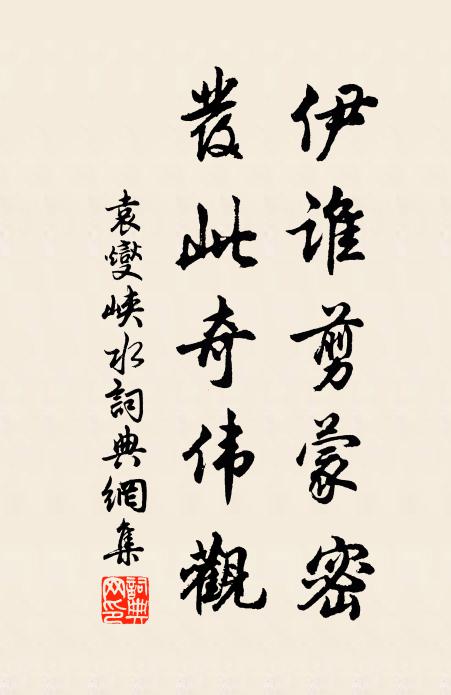 伊谁剪蒙密
发此奇伟观
袁燮峡水词典网集
词典网印